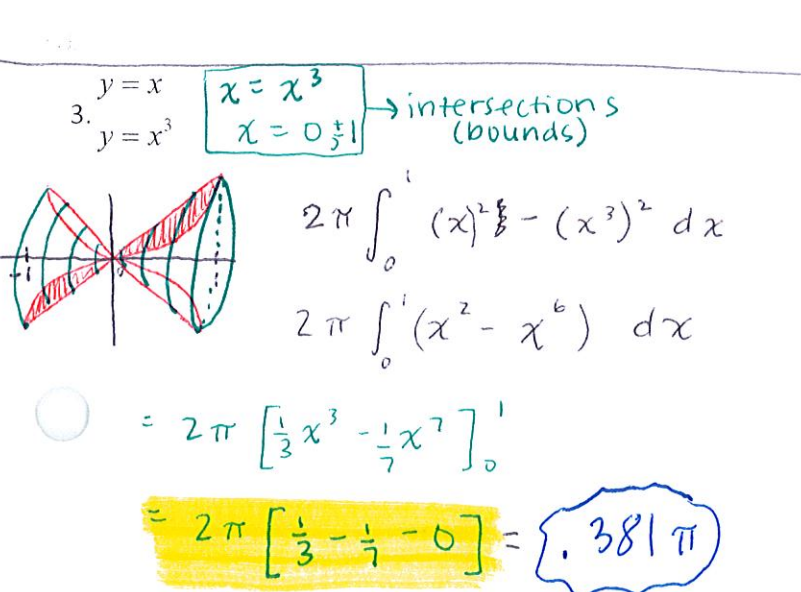 3. y = x
y = x³
x = x³
x = 0, ±1
→ intersections
(bounds)
-1
2π ∫₀¹ (x)² - (x³)² dx
2π ∫₀¹ (x² - x⁶) dx
= 2π [⅓x³ - 1/7 x⁷]₀¹
= 2π [⅓ - 1/7 - 0] = .381π